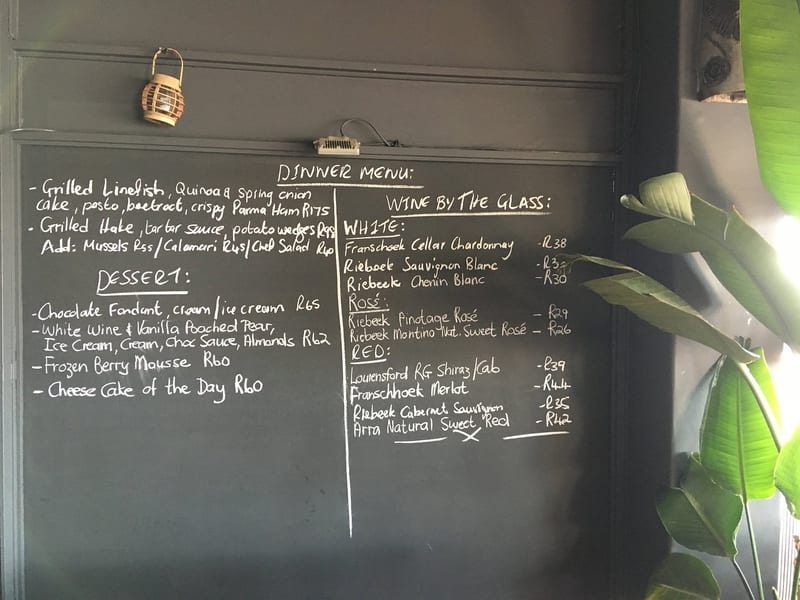 DINNER MENU:
- Grilled Linefish, Quinoa & Spring onion
cake, pesto, beetroot, crispy Parma Ham R175
- Grilled Hake, tartar sauce, potato wedges R95
Add: Mussels R55/Calamari R45/Chef Salad R40
DESSERT:
- Chocolate Fondant, cream/ice cream R65
- White Wine & Vanilla Poached Pear,
Ice Cream, Cream, Choc Sauce, Almonds R62
- Frozen Berry Mousse R60
- Cheese Cake of the Day R60
WINE BY THE GLASS:
WHITE:
Franschoek Cellar Chardonnay - R38
Riebeek Sauvignon Blanc
Riebeek Chenin Blanc - R30
ROSÉ:
Riebeek Pinotage Rosé - R29
Riebeek Montino Nat. Sweet Rosé - R26
RED:
Lourensford RG Shiraz/Cab - R39
Franschhoek Merlot - R44
Riebeek Cabernet Sauvignon - R35
Arra Natural Sweet Red - R42